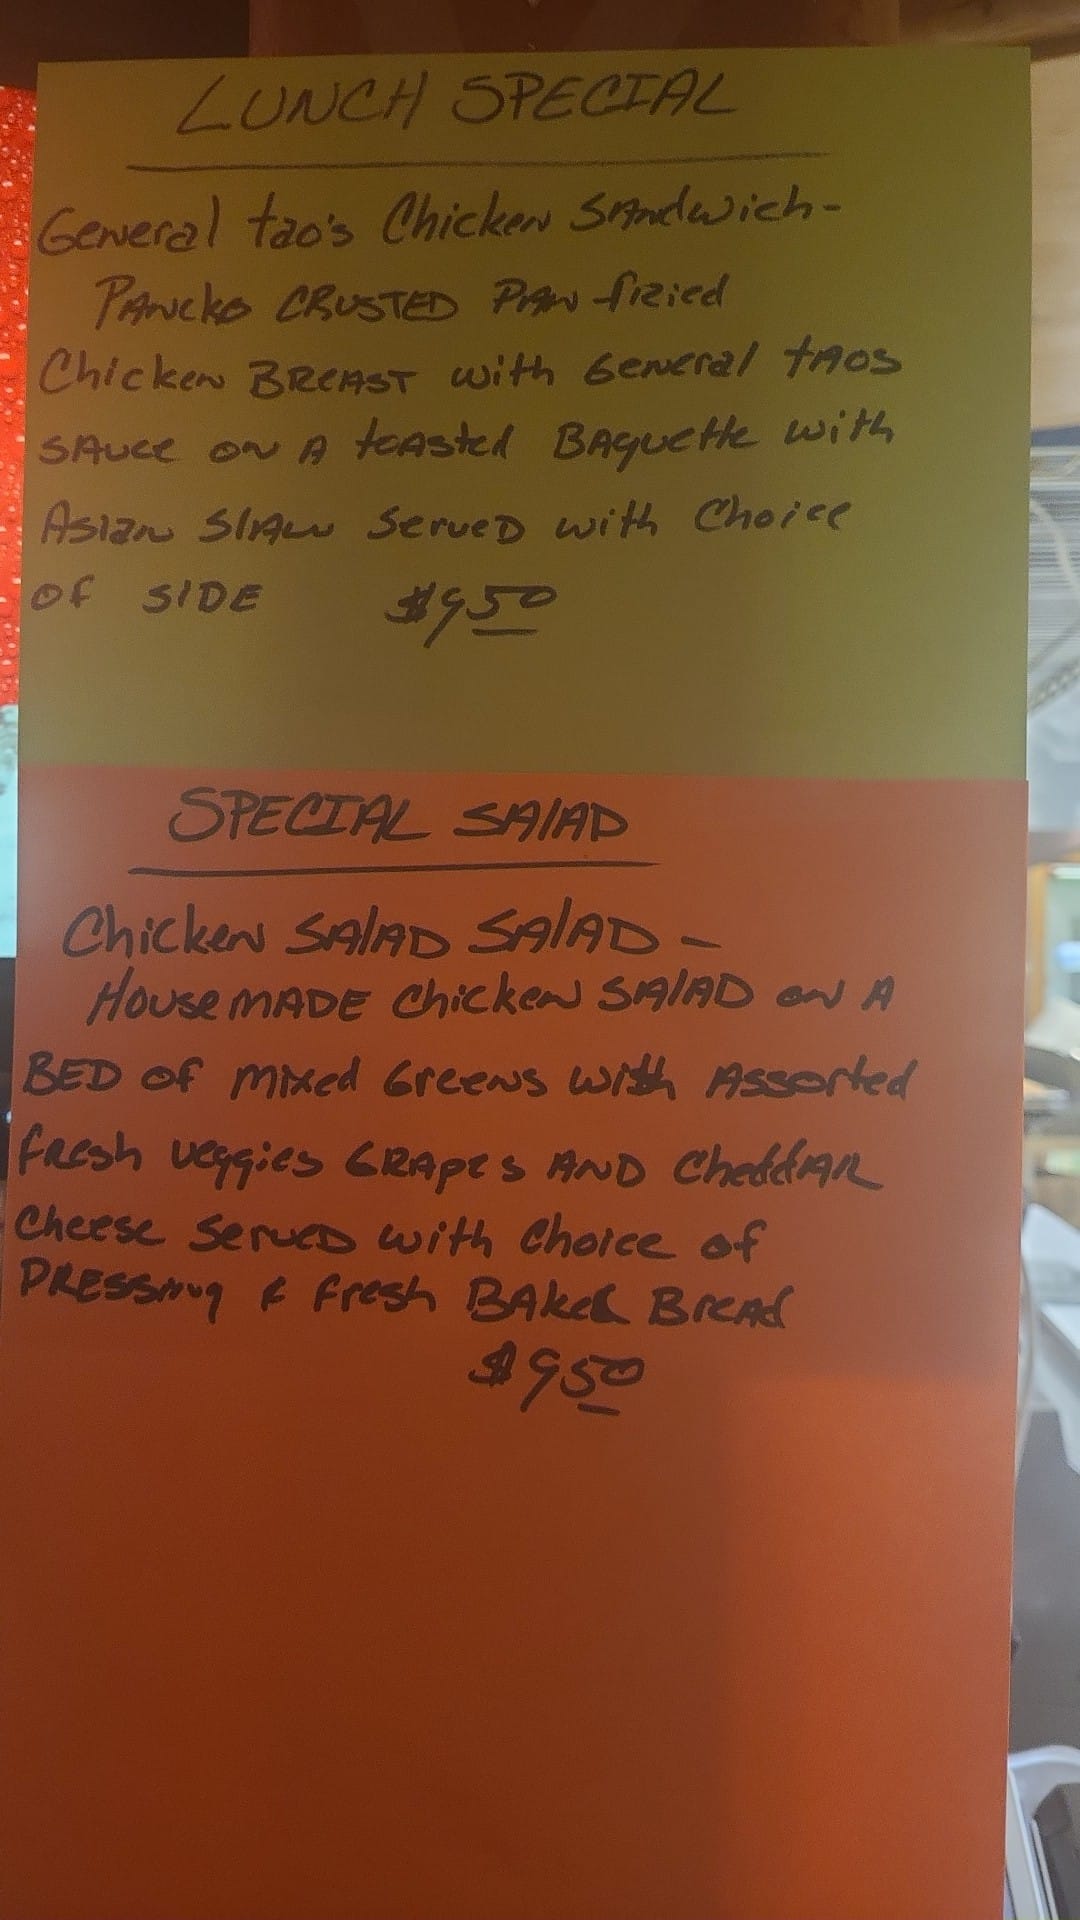 LUNCH SPECIAL
General tao's Chicken Sandwich-
Pancko CRUSTED Pan fried
Chicken BREAST with General tAOS
SAUCE on A toasted Baguette with
Asian Slaw Served with Choice
of SIDE $9.50
SPECIAL SALAD
Chicken SALAD SALAD -
House MADE Chicken SALAD on A
BED of mixed Greens with Assorted
fresh veggies GRApes AND CheddAR
Cheese Served with Choice of
DRESSing & fresh BAked Bread
$9.50